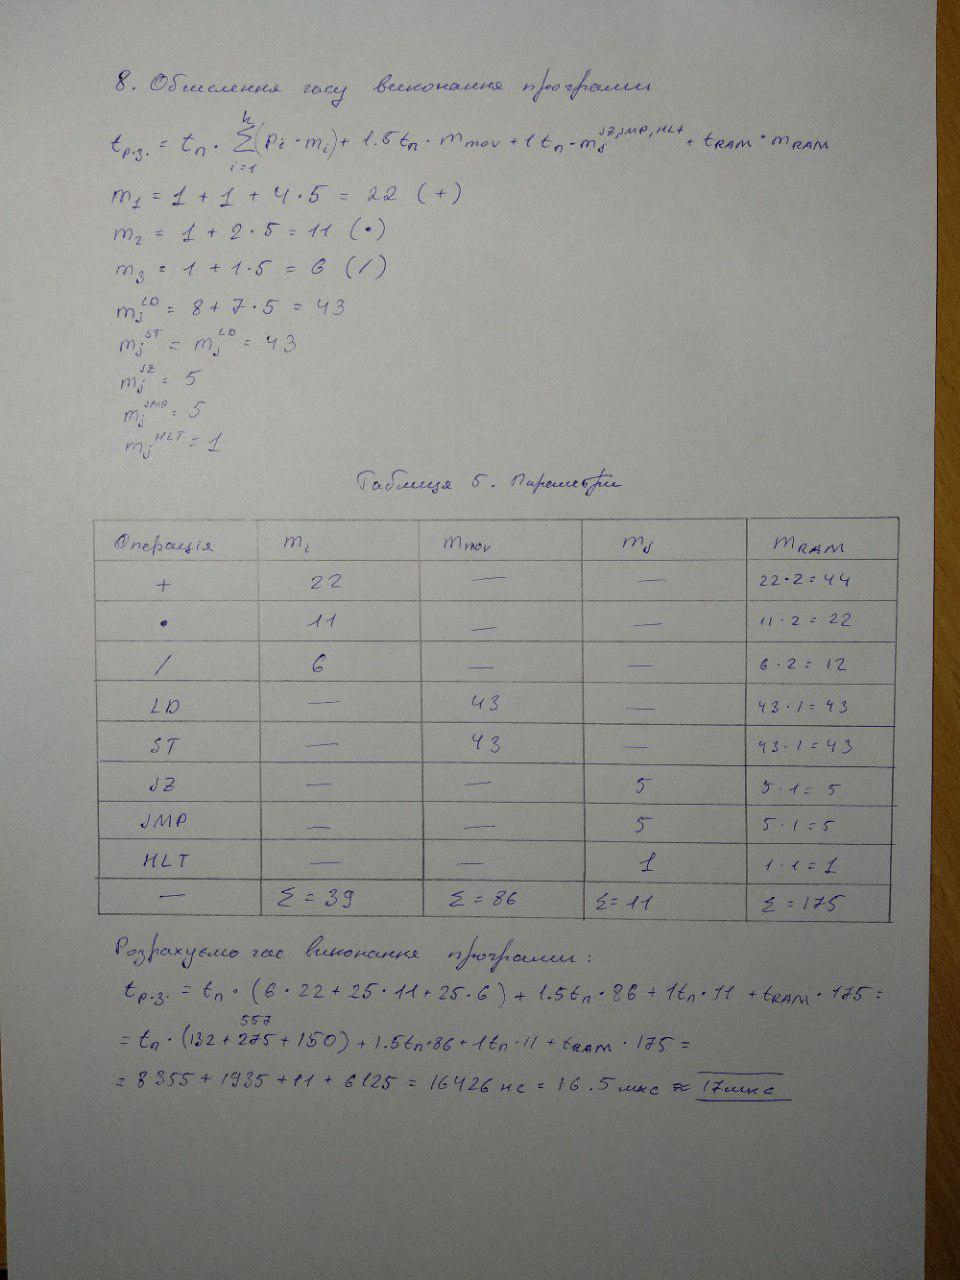 8. Обчислення часу виконання програми
t р.з. = tп · Σ(k, i=1) (Pi · mi) + 1.5tп · m mov + 1tп · mj JZ, JMP, HLT + t RAM · m RAM
m1 = 1 + 1 + 4·5 = 22 (+)
m2 = 1 + 2·5 = 11 (•)
m3 = 1 + 1·5 = 6 (/)
mj LD = 8 + 7·5 = 43
mj ST = mj LD = 43
mj JZ = 5
mj JMP = 5
mj HLT = 1
Таблиця 5. Параметри
Операція mi m mov mj m RAM
+ 22 — — 22·2=44
• 11 — — 11·2=22
/ 6 — — 6·2=12
LD — 43 — 43·1=43
ST — 43 — 43·1=43
JZ — — 5 5·1=5
JMP — — 5 5·1=5
HLT — — 1 1·1=1
— Σ=39 Σ=86 Σ=11 Σ=175
Розрахуємо час виконання програми:
t р.з. = tп · (6·22 + 25·11 + 25·6) + 1.5tп·86 + 1tп·11 + t RAM · 175 =
557
= tп · (132 + 275 + 150) + 1.5tп·86 + 1tп·11 + t RAM · 175 =
= 8355 + 1935 + 11 + 6125 = 16426 нс = 16.5 мкс ≈ 17мкс